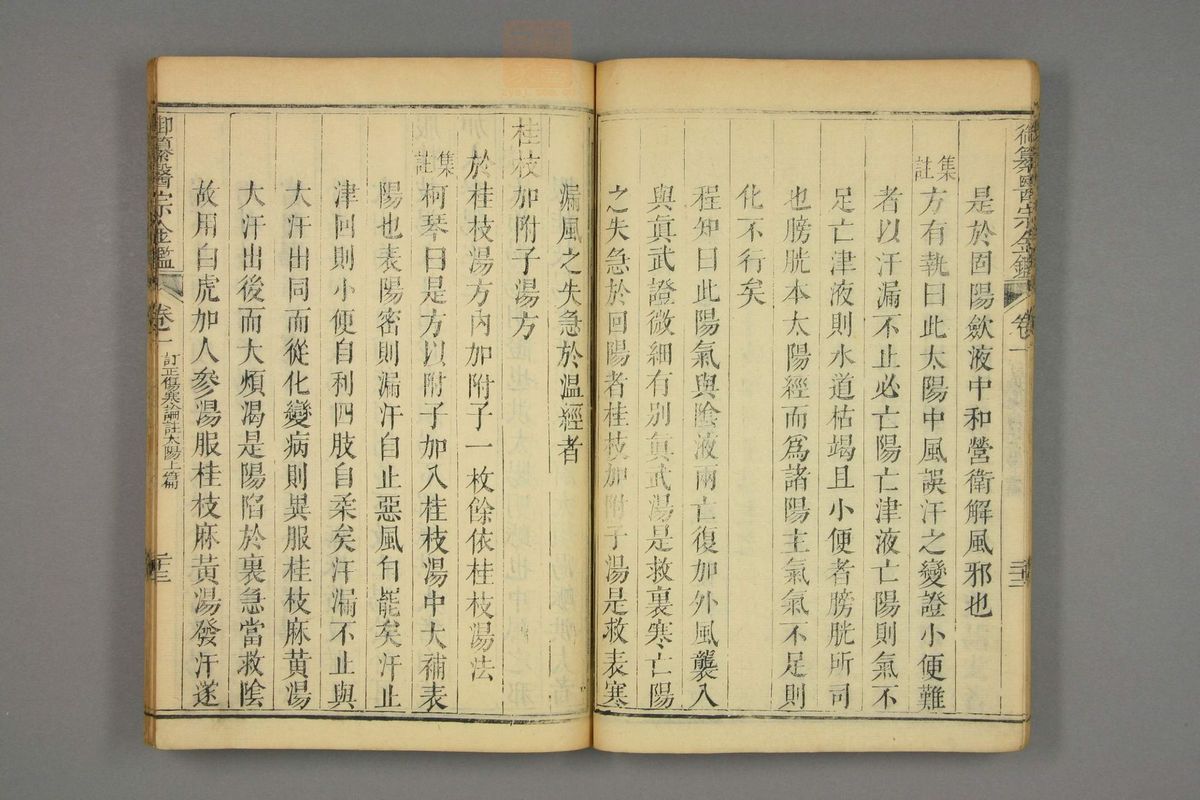 御纂醫宗金鑑 卷一
是於固陽歛液中和營衛解風邪也
集註
方有執曰此太陽中風誤汗之變證小便難
者以汗漏不止必亡陽亡津液亡陽則氣不
足亡津液則水道枯竭且小便者膀胱所司
也膀胱本太陽經而爲諸陽主氣氣不足則
化不行矣
程知曰此陽氣與陰液兩亡復加外風襲入
與眞武證微細有別眞武湯是救裏寒亡陽
之失急於回陽者桂枝加附子湯是救表寒
漏風之失急於温經者
桂枝加附子湯方
於桂枝湯方內加附子一枚餘依桂枝湯法
集註
柯琴曰是方以附子加入桂枝湯中大補表
陽也表陽密則漏汗自止惡風自罷矣汗止
津回則小便自利四肢自柔矣汗漏不止與
大汗出同而從化變病則異服桂枝麻黃湯
大汗出後而大煩渴是陽陷於裏急當救陰
故用白虎加人參湯服桂枝麻黃湯發汗遂
御纂醫宗金鑑 卷一 訂正傷寒論註太陽上篇 二十三